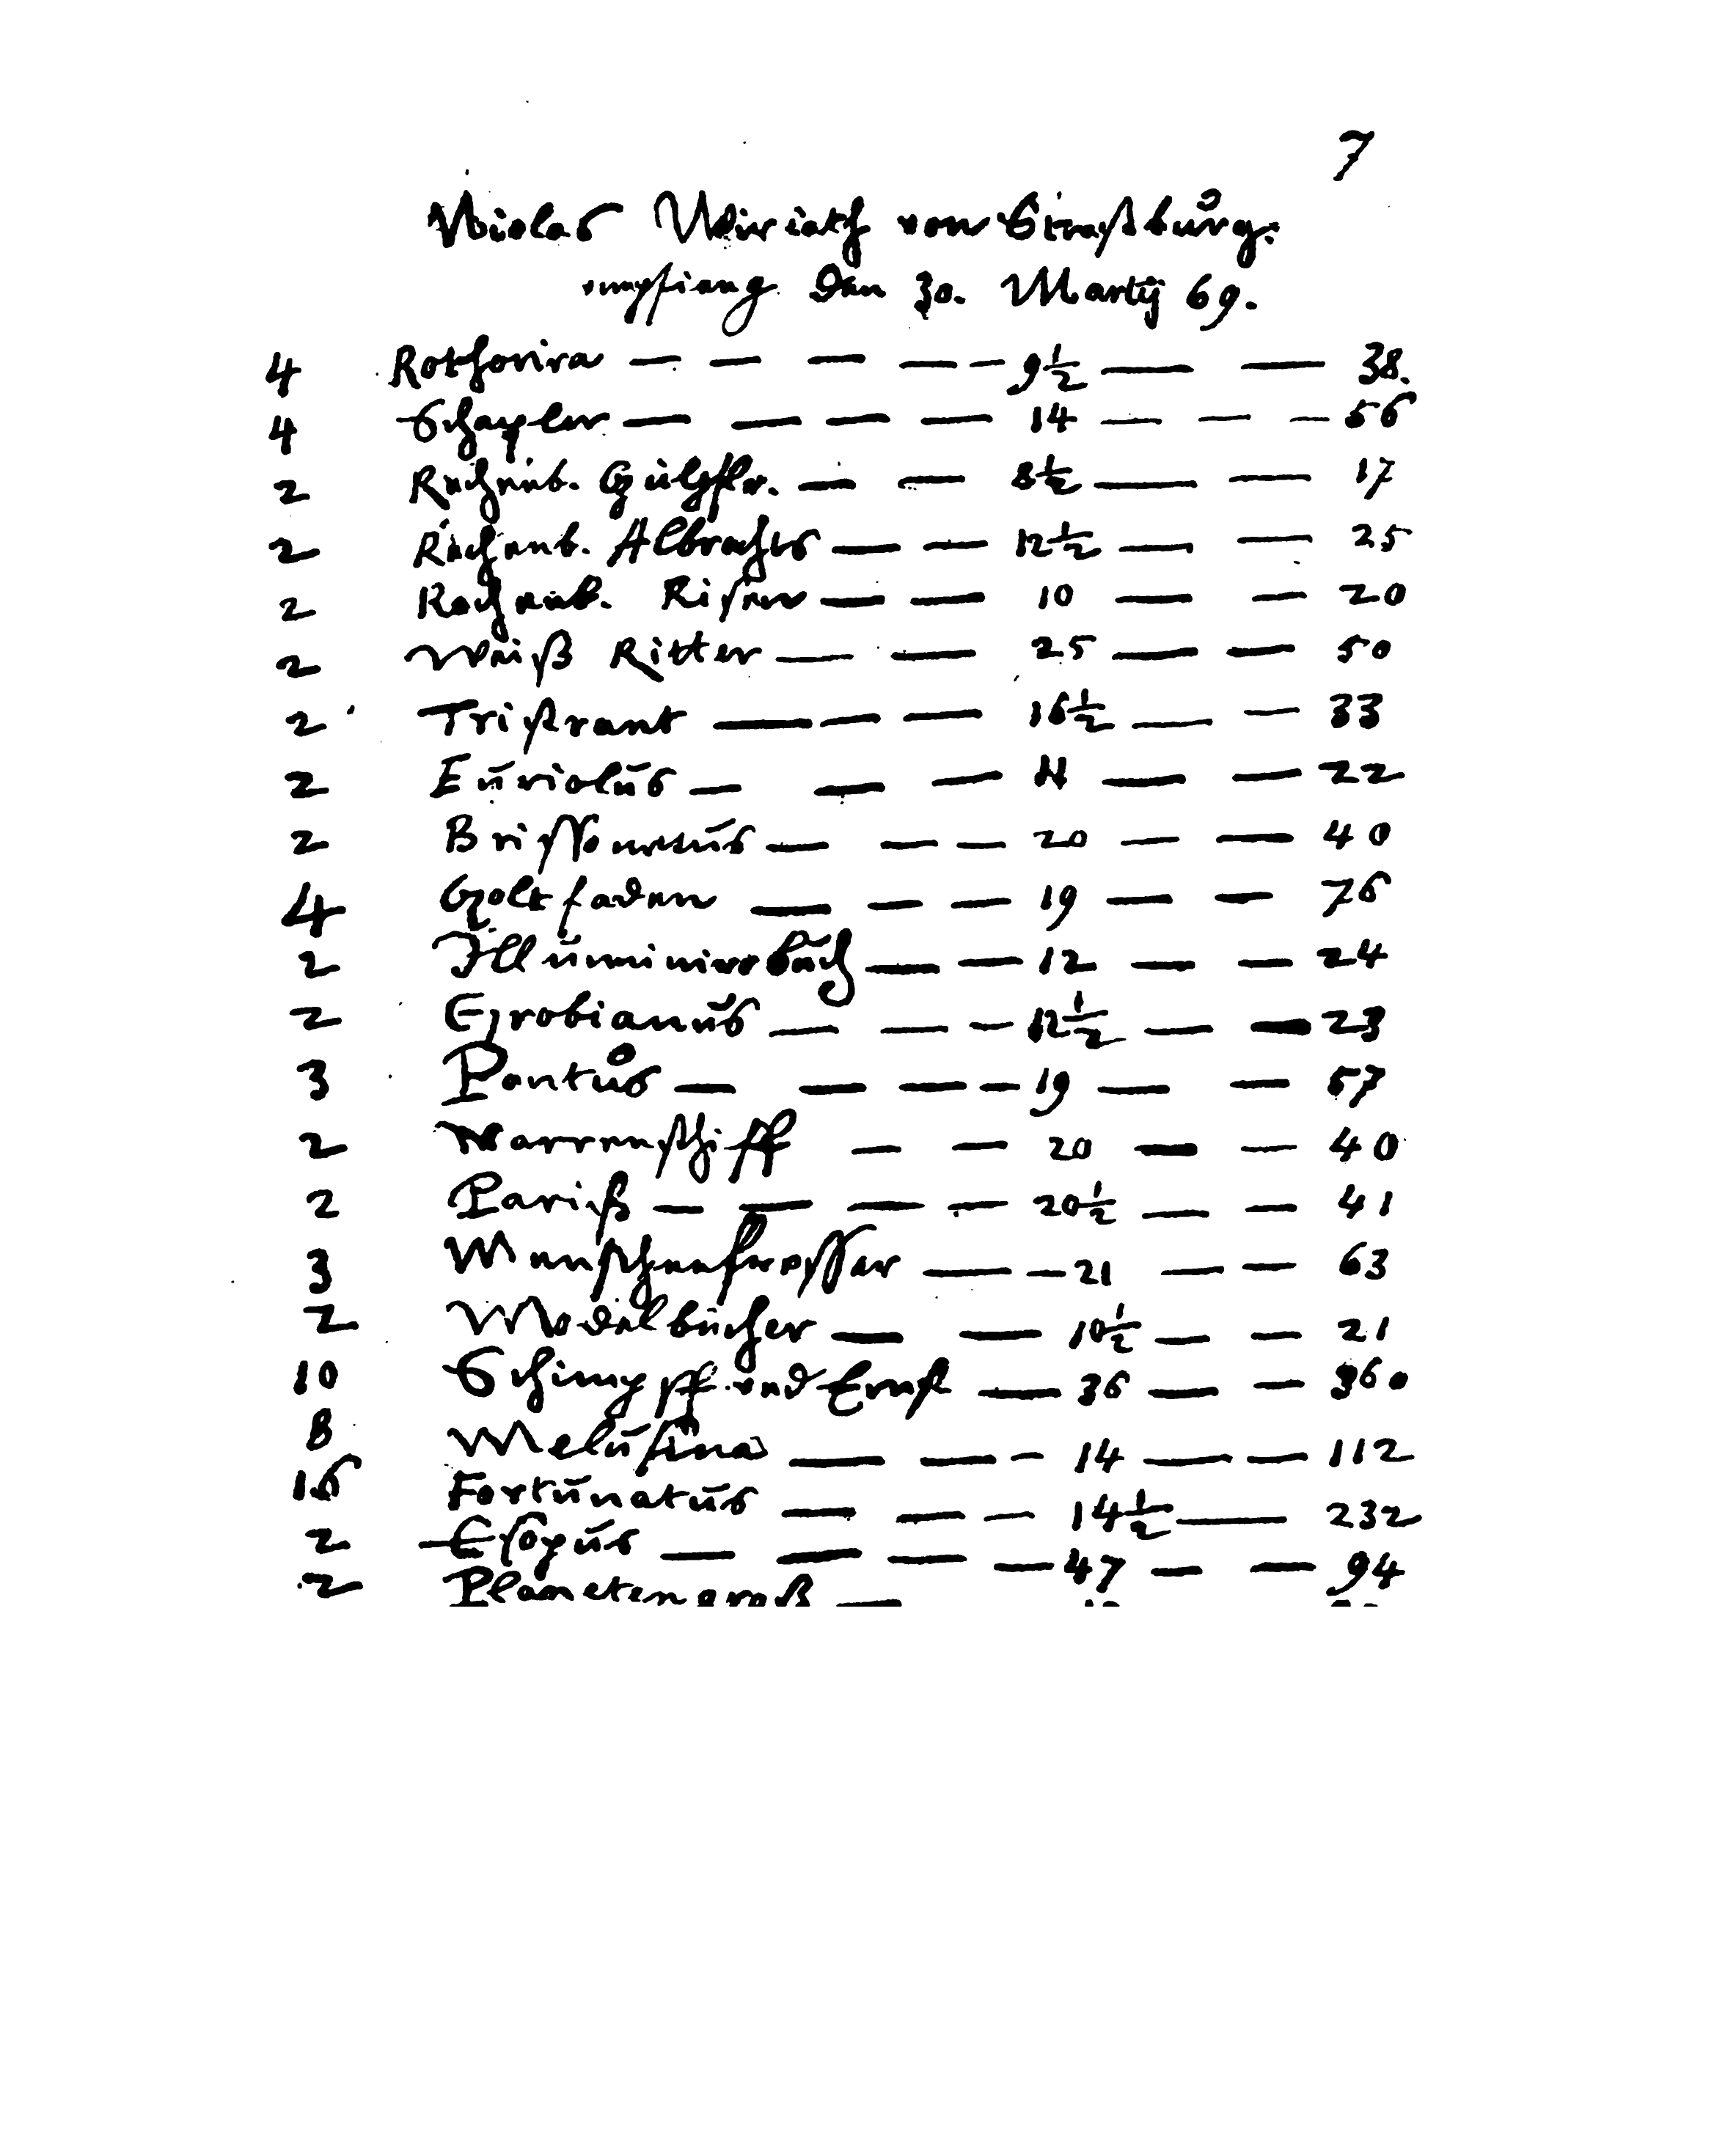 7
Niclas Weiriath von Straßbůrg.
empfieng den 30. Martij 69.
4 Rothsovira — — — — — 9½ — — 38.
4 Schapler — — — — 14 — — — 56
2 Rechenb. Gülffr. — — 8½ — — 17
2 Rechenb. Albrechts — — 12½ — — 25
2 Rechenb. Risen — — 10 — — 20
2 Weiß Ritter — — 25 — — 50
2 Tristrant — — — 16½ — — 33
2 Euriolus — — — 11 — — 22
2 Brissonetus — — — 20 — — 40
4 Goltfaden — — — 19 — — 76
2 Illuminirbuch — — 12 — — 24
2 Grobianus — — — 12½ — — 23
3 Pontůs — — — — 19 — — 57
2 Narrenschiff — — 20 — — 40
2 Pariß — — — — 20½ — — 41
3 Menschenfresser — — 21 — — 63
2 Modelbücher — — 10½ — — 21
10 Schimpff und Ernst — 36 — — 360
8 Melusina — — — 14 — — 112
16 Fortunatus — — — 14½ — 232
2 Esopus — — — — 47 — — 94
2 Planeten groß —